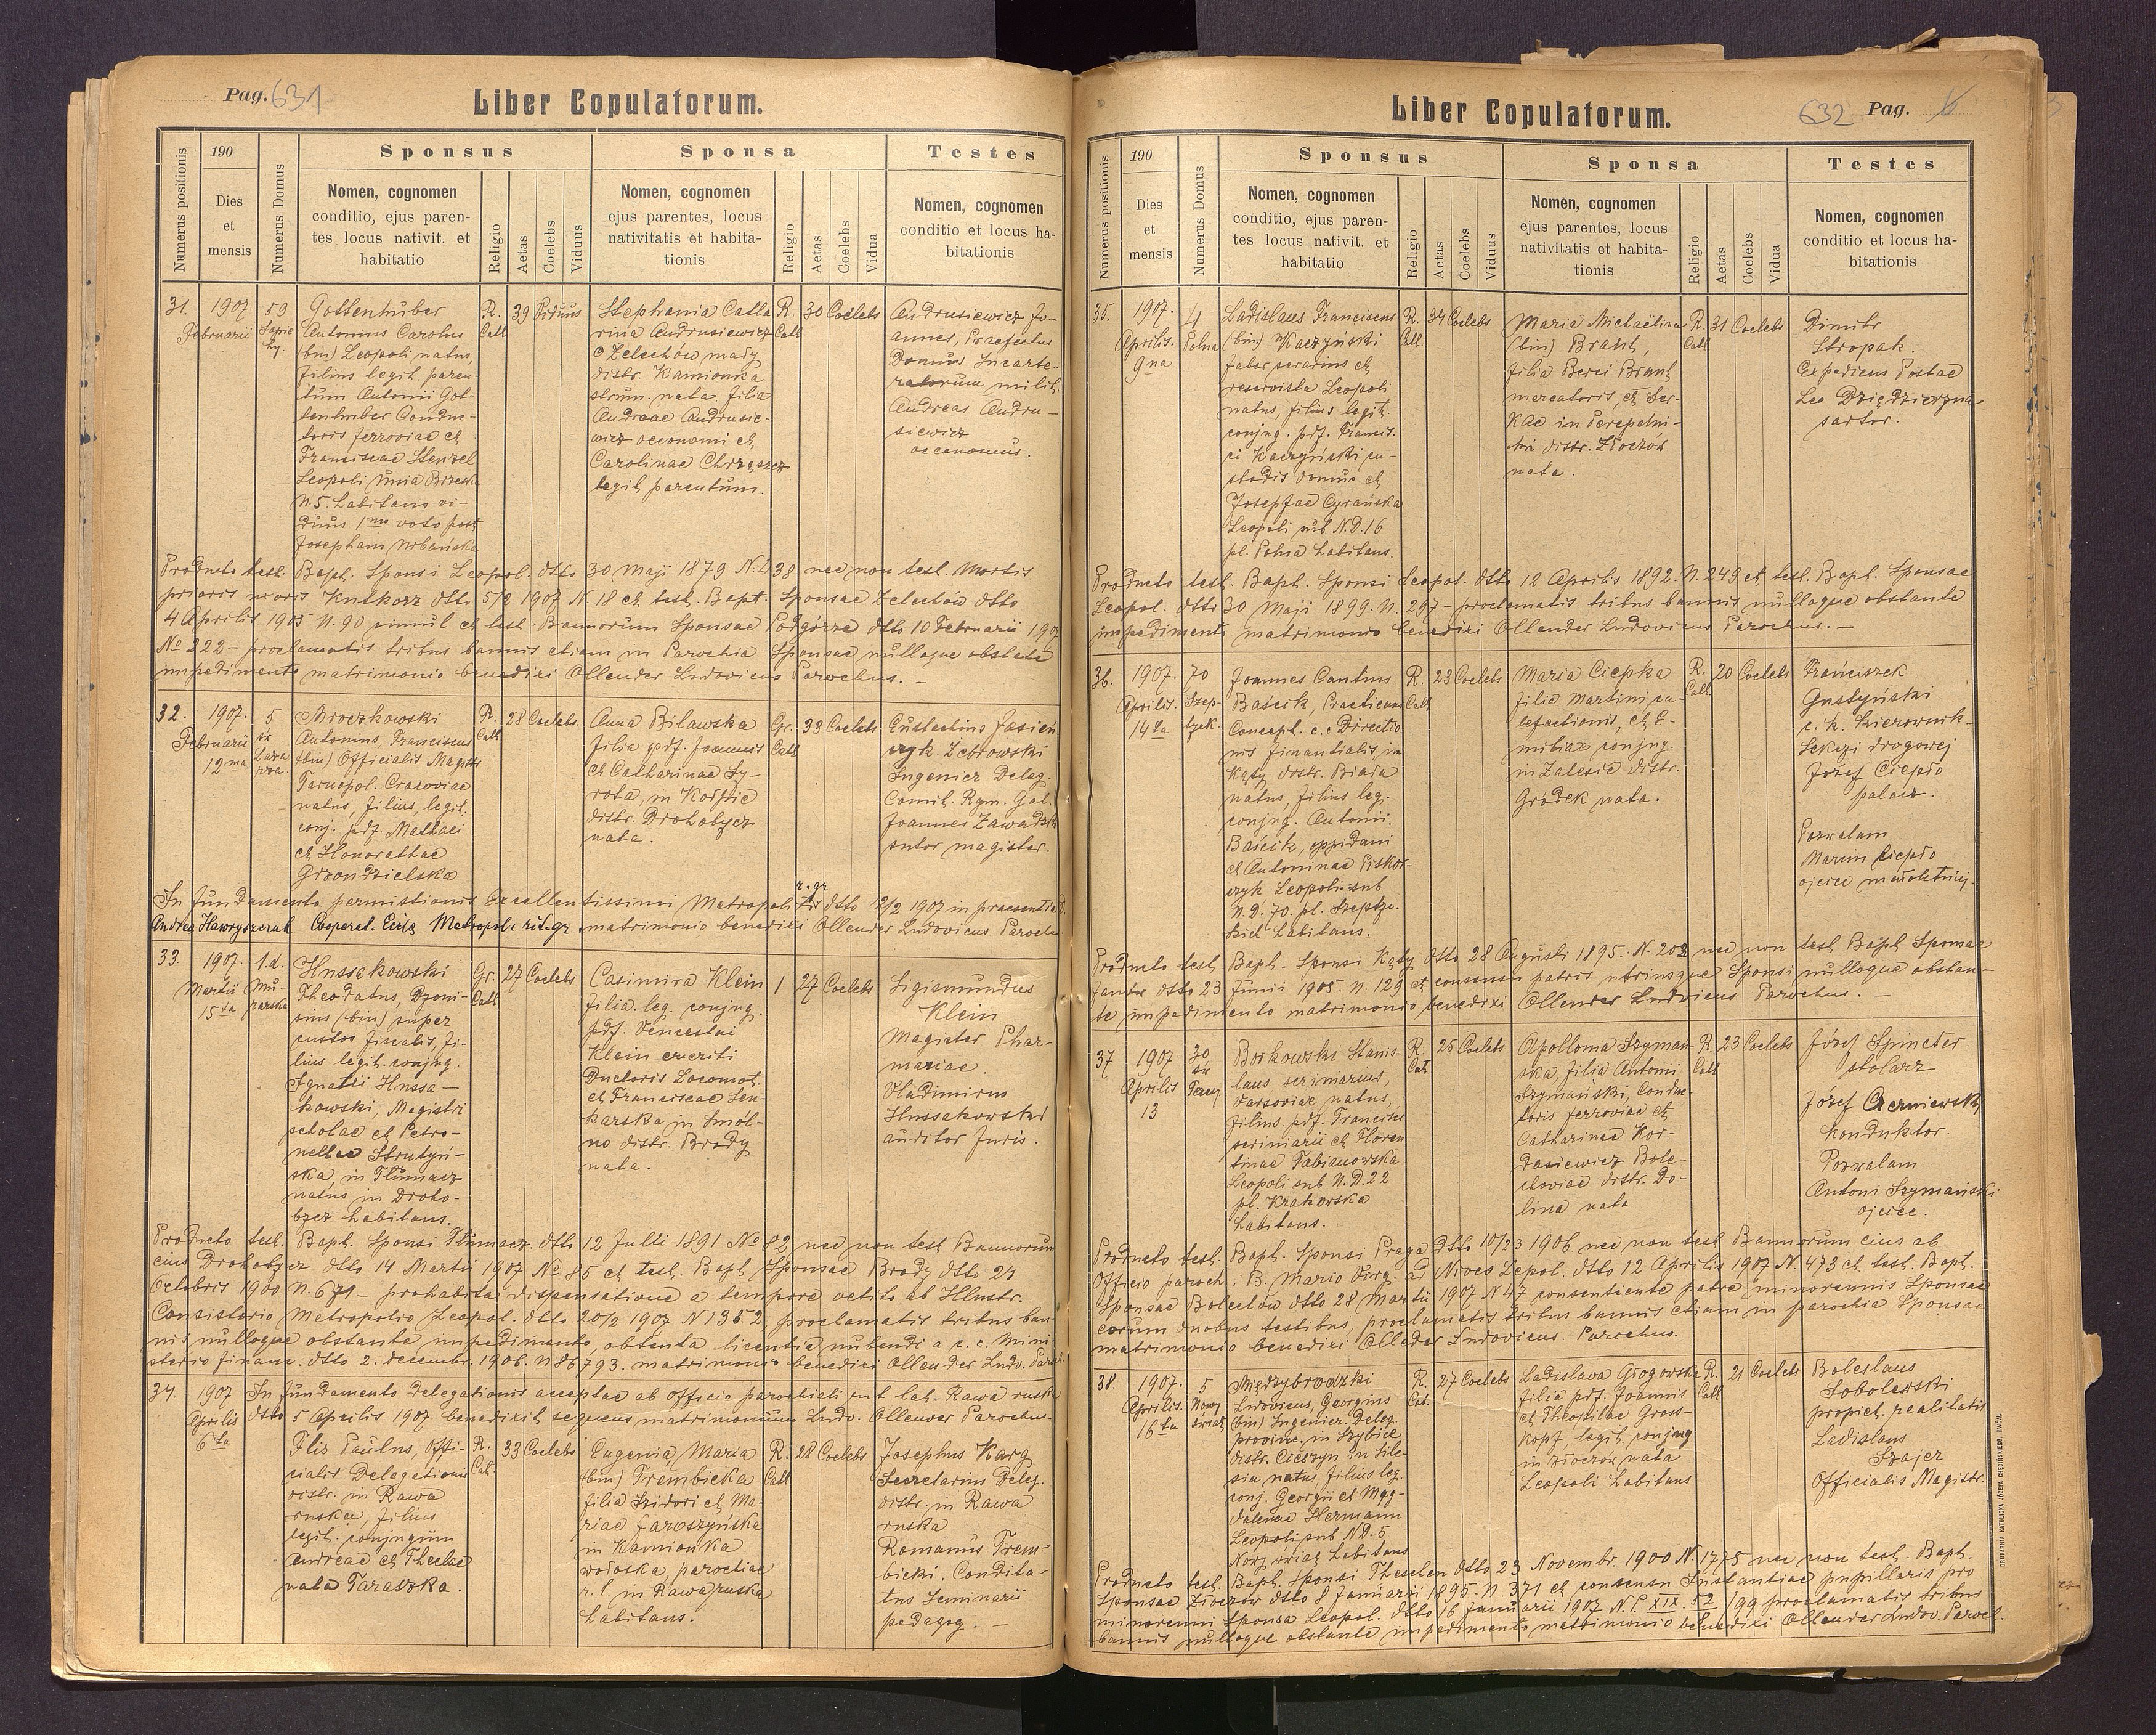 Pag. 631
Liber Copulatorum.
Numerus positionis
190
Dies
et
mensis
Numerus Domus
Sponsus
Nomen, cognomen
conditio, ejus paren-
tes locus nativit. et
habitatio
Religio
Aetas
Coelebs
Viduus
Sponsa
Nomen, cognomen
ejus parentes, locus
nativitatis et habita-
tionis
Religio
Aetas
Coelebs
Vidua
Testes
Nomen, cognomen
conditio et locus ha-
bitationis
31.
1907
Februarii
59
Sapie
hy.
Gottenhuber
Antonius Carolus
(bin) Leopoli natus,
filius legit. paren-
tum Antonii Got-
tenhuber Conduc-
toris ferroviae et
Franciscae Stenzel
Leopoli
N. 5. habitans vi-
duus 1mo voto post
Josepham Urbańska
R.
Cath
39
Viduus
Stephania Catha
rina Andrusiewicz
e Zelechów mały
distr. Kamionka
strum. nata filia
Andreae Andrusie-
wicz oeconomi et
Carolinae Chrząszcz
legit parentum.
R.
Cath
30
Coelebs
Andrusiewicz Jo-
annes, Praefectus
Domus Incarce-
ratorum milit.
Andreas Andru-
siewicz
oeconomus.
Producto test. Bapt. Sponsi Leopol. dtto 30 Maji 1879 N. 438 nec non test. Mortis
prioris uxoris Kutkorz dtto 5/2 1907 N. 18 et test. Bapt. Sponsae Zelechów dtto
4 Aprilis 1905 N. 90 simul et test. Bannorum Sponsae Podgórze dtto 10 Februarii 1907
No 222 - proclamatis tribus bannis etiam in Parochia Sponsae nulloque obstate
impedimento matrimonio benedixi Ollender Ludovicus Parochus. -
32.
1907.
Februarii
12ma
5
św
Laza
rza.
Mroczkowski
Antonius, Franciscus
(bin) Officialis Magistr
Tarnopol. Cracoviae
natus, filius legit.
conj. pdf. Mathaei
et Honorathae
Grzondzielska
R.
Cath
28
Coelebs.
Anna Bilawska
filia pdf. Joannis
et Catharinae Sy-
rota, in
distr. Drohobycz
nata.
Gr.
Cath
33
Coelebs
Eustachius Jasień
czyk. Zebrowski
Ingenier Deleg.
Comit. Rgm. Gal.
Joannes Zawadzki
sutor magister.
In fundamento permissionis Excellentissimi Metropolitae r. gr. dtto 12/2 1907 in praesentia
Andrea Hawryszczuk Cooperat. Eccla Metropol. rit. gr matrimonio benedixi Ollender Ludovicus Paroch
33.
1907.
Martii
15ta
1.d.
Mu-
rarska
Hussakowski
Theodatus, Dyoni-
sius (bin) super
custos fiscalis, fi-
lius legit. conjug.
Ignatii Hussa-
kowski, Magistri
scholae et Petro-
nellae Strutyń-
ska, in Tłumacz
natus in Droho-
bycz habitans.
Gr.
Cath
27
Coelebs
Casimira Klein
filia leg. conjug.
pdf. Venceslai
Klein emeriti
Ductoris Locomot.
et Franciscae Sen-
karska in Smól-
no distr. Brody
nata.
1
27
Coelebs
Sigismundus
Klein
Magister Phar-
maciae.
Vladimirus
Hussakowski
auditor Juris.
Producto test. Bapt. Sponsi Tłumacz dtto 12 Julli 1891 No 82 nec non test Bannorum
eius Drohobycz dtto 14 Martii 1907 No 85 et test. Bapt. Sponsae Brody dtto 24
Octobris 1900 N. 671 - prohabita dispensatione a tempore vetito ab Illustr.
Consistorio Metropol Leopol. dtto 20/2 1907 N 1352 proclamatis tribus ban-
nis nulloque obstante impedimento, obtenta licentia nubendi a c. c. Mini-
sterio financ. dtto 2. decembr. 1906. N 86793. matrimonio benedixi Ollender Ludv. Paroch.
34.
1907
Aprilis
6ta
In fundamento Delegationis acceptae ab officio parochiali rit lat. Rawa ruska
dtto 5 Aprilis 1907 benedixit sequens matrimonium Ludv. Ollender Parochus.
Flis Paulus, offi-
cialis Delegationis
distr. in Rawa
ruska, filius
legit. conjugum
Andreae et Theclae
nata Taraszka.
R.
Cat.
33
Coelebs
Eugenia, Maria
(bin) Trembicka
filia Isidori et Ma-
riae Jaroszyńska
in Kamionka
wołoska, parochiae
r. l. in Rawa ruska
habitans.
R.
Cath
28
Coelebs
Josephus Karg
Secretarius Deleg.
distr. in Rawa
ruska
Romanus Trem-
bicki. Candida-
tus Seminarii
pedagog. -
Liber Copulatorum.
632 Pag.
Numerus positionis
190
Dies
et
mensis
Numerus Domus
Sponsus
Nomen, cognomen
conditio, ejus paren-
tes locus nativit. et
habitatio
Religio
Aetas
Coelebs
Viduus
Sponsa
Nomen, cognomen
ejus parentes, locus
nativitatis et habita-
tionis
Religio
Aetas
Coelebs
Vidua
Testes
Nomen, cognomen
conditio et locus ha-
bitationis
35.
1907.
Aprilis.
9na
4
Polna
Ladislaus Franciscus
(bin) Kaczyński
faber serarius et
reservista Leopoli
natus, filius legit.
conjug. pdf. Francis-
ci Kaczyński cu-
stodis domus et
Josephae Cyrańska
Leopoli sub N.D. 16
pl. Polna habitans.
R.
Cath.
34
Coelebs
Maria Michaëlina
(bin) Brauh,
filia Berci Brauh
mercatoris, et Ser-
kae in Perepelni-
ki distr. Złoczów
nata.
R.
Cath
31
Coelebs
Dimitr
Stropak.
Expediens Postae
Leo Dzię
sartor.
Producto test. Bapt. Sponsi Leopol. dtto 12 Aprilis 1892. N. 249 et test. Bapt. Sponsae
Leopol. dtto 30 Maji 1899. N. 297 - proclamatis tribus bannis nulloque obstante
impedimento matrimonio benedixi Ollender Ludovicus Parochus. -
36.
1907.
Aprilis.
14ta
70
Szep-
tyck.
Joannes Cantius
Baścik, Practicans
Concept. c. c. Directio
nis finantialis, in
Kąty distr. Biała
natus, filius leg.
conjug. Antoni.
Baścik, oppidani
et Antoninae Piskor-
czyk Leopoli sub
N.D. 70. pl. Szepty-
ckich habitans.
R.
Cath
23
Coelebs
Maria Ciepka
filia Martini ca-
lefactionis, et E-
miliae conjug.
in Zalesie distr.
Gródek nata.
R.
Cath
20
Coelebs
Franciszek
Gustyński
c. k. kierownik-
Sekcyi drogowej
Jozef Ciepło
palacz.
Pozwalam
Marcin Ciepło
ojciec małoletniej.
Producto test Bapt. Sponsi Kąty dtto 28 Augusti 1895. N. 203 nec non test Bapt Sponsae
Janów dtto 23 Junii 1905. N. 129 et consensu patris utriusque Sponsi nulloque obstan-
te impedimento matrimonio benedixi Ollender Ludvicus Parochus. -
37
1907
Aprilis
13
30
św
Borkowski Stanis-
laus scriniarius,
Varsoviae natus,
filius. pdf. Francisci
scriniarii et Floren
tinae Fabianowska
Leopoli sub N.D. 22
pl. Krakowska
habitans.
R.
Cat.
25
Coelebs
Apollonia Szyman-
ska filia Antoni
Szymański, Conduc-
toris ferroviae et
Catharinae Kor-
dasiewicz Bole-
choviae distr. Do-
lina nata
R.
Cath
23
Coelebs
Józef Spineter
stolarz
Józef Czerniewski
konduktor.
Pozwalam
Antoni Szymański
ojciec.
Producto test. Bapt. Sponsi Praga dtto 10/23 1906 nec non test Bannorum eius ab
Officio paroch. B. Mario Virg. ad Nives Lepol. dtto 12 Aprilis 1907 N. 473 et test. Bapt.
Sponsae Bolechów dtto 28 Martii 1907 N 47 consentiente patre minorennis Sponsae
corum duobus testibus, proclamatis tribus bannis etiam in parochia Sponsae
matrimonio benedixi Olleder Ludovicus. Parochus.
38.
1907.
Aprilis.
16ta
5
Nowy
świat
Międzybrodzki
Ludovicus, Georgius
(bin) Ingenier. Deleg.
provinc. in Szybice
distr. Cieszyn in Sile-
sia natus filius leg.
conj. Georgii et Mag-
dalenae Hermann
Leopoli sub ND. 5
Nowy świat habitans
R.
Cat.
27
Coelebs
Ladislava Głogowska
filia pdf. Joannis
et Theophilae Gross-
kopf, legit. conjug
in Złoczów nata
Leopoli habitans
R.
Cath
21
Coelebs
Boleslaus
Sobolewski
propiet. realitatis
Ladislaus
Szajer
Officialis Magistr.
Producto test. Bapt. Sponsi Theschen dtto 23 Novembr. 1900 N. 1775 nec non test. Bapt.
Sponsae Złoczów dtto 8 Januarii 1895. N. 371 et consensu Instantiae pupillaris pro
minorenni Sponsa Leopol. dtto 16 Januarii 1907 N. P. XIX. 52/8 /99 proclamatis tribus
bannis nulloque obstante impedimento matrimonio benedixi Ollender Ludov. Paroch.
DRUKARNIA KATOLICKA JÓZEFA CHĘCIŃSKIEGO, LWÓW.